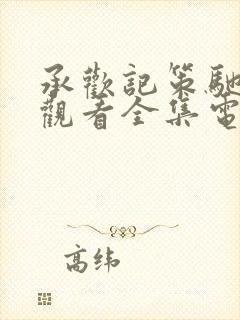 承歡記策馳
觀看全集電
高纬